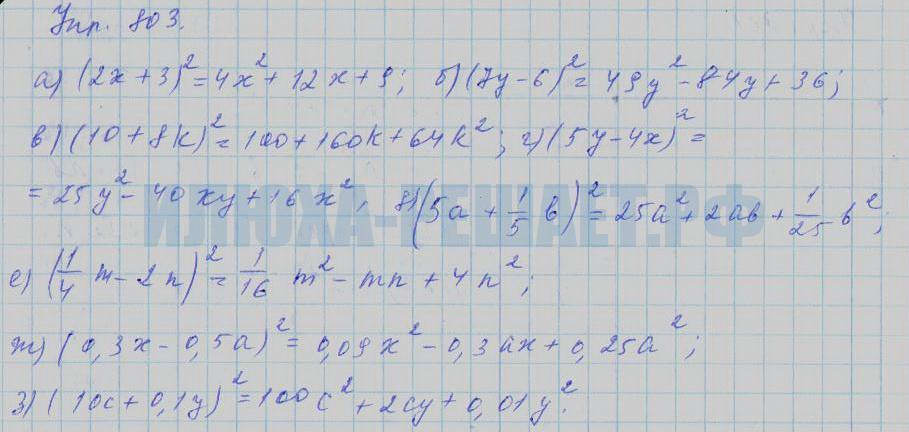 Упр. 803.
а) (2x + 3)² = 4x² + 12x + 9; б) (7y - 6)² = 49y² - 84y + 36;
в) (10 + 8k)² = 100 + 160k + 64k²; г) (5y - 4x)² =
= 25y² - 40xy + 16x²; д) (5a + 1/5 b)² = 25a² + 2ab + 1/25 b²;
ИЛЮХА-РЕШАЕТ.РФ
е) (1/4 m - 2n)² = 1/16 m² - mn + 4n²;
ж) (0,3x - 0,5a)² = 0,09x² - 0,3ax + 0,25a²;
з) (10c + 0,1y)² = 100c² + 2cy + 0,01y².